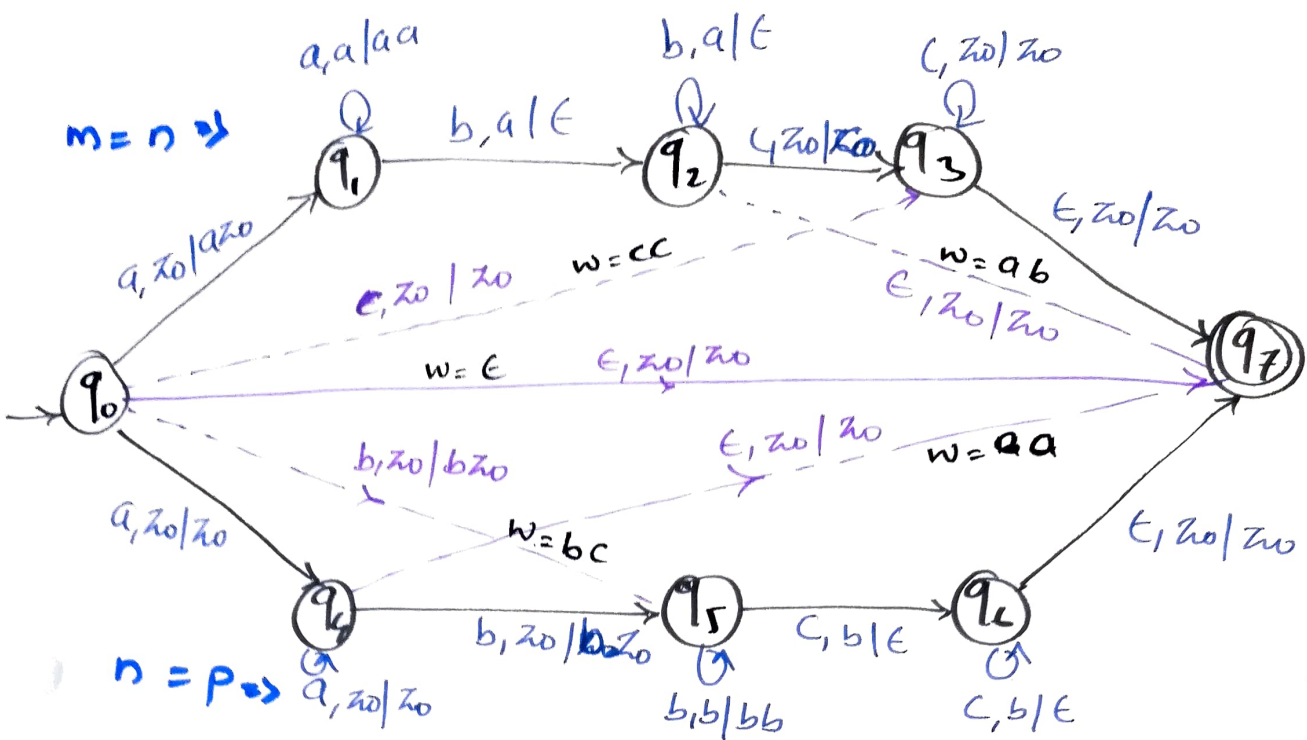 a,a/aa
b,a/ϵ
c,z0/z0
m = n ⇒
b,a/ϵ
q1
q2
q3
a,z0/az0
ϵ,z0/z0
w=cc
w=ab
c,z0/z0
ϵ,z0/z0
w=ϵ
ϵ,z0/z0
q7
q0
b,z0/bz0
ϵ,z0/z0
w=aa
a,z0/z0
w=bc
ϵ,z0/z0
q5
b,z0/bz0
c,b/ϵ
n = p ⇒
a,z0/z0
b,b/bb
c,b/ϵ